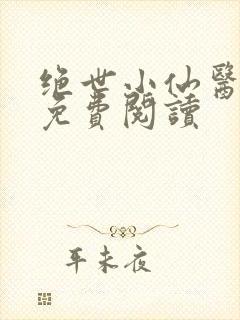 绝世小仙醫
免費閱讀
耳未夜